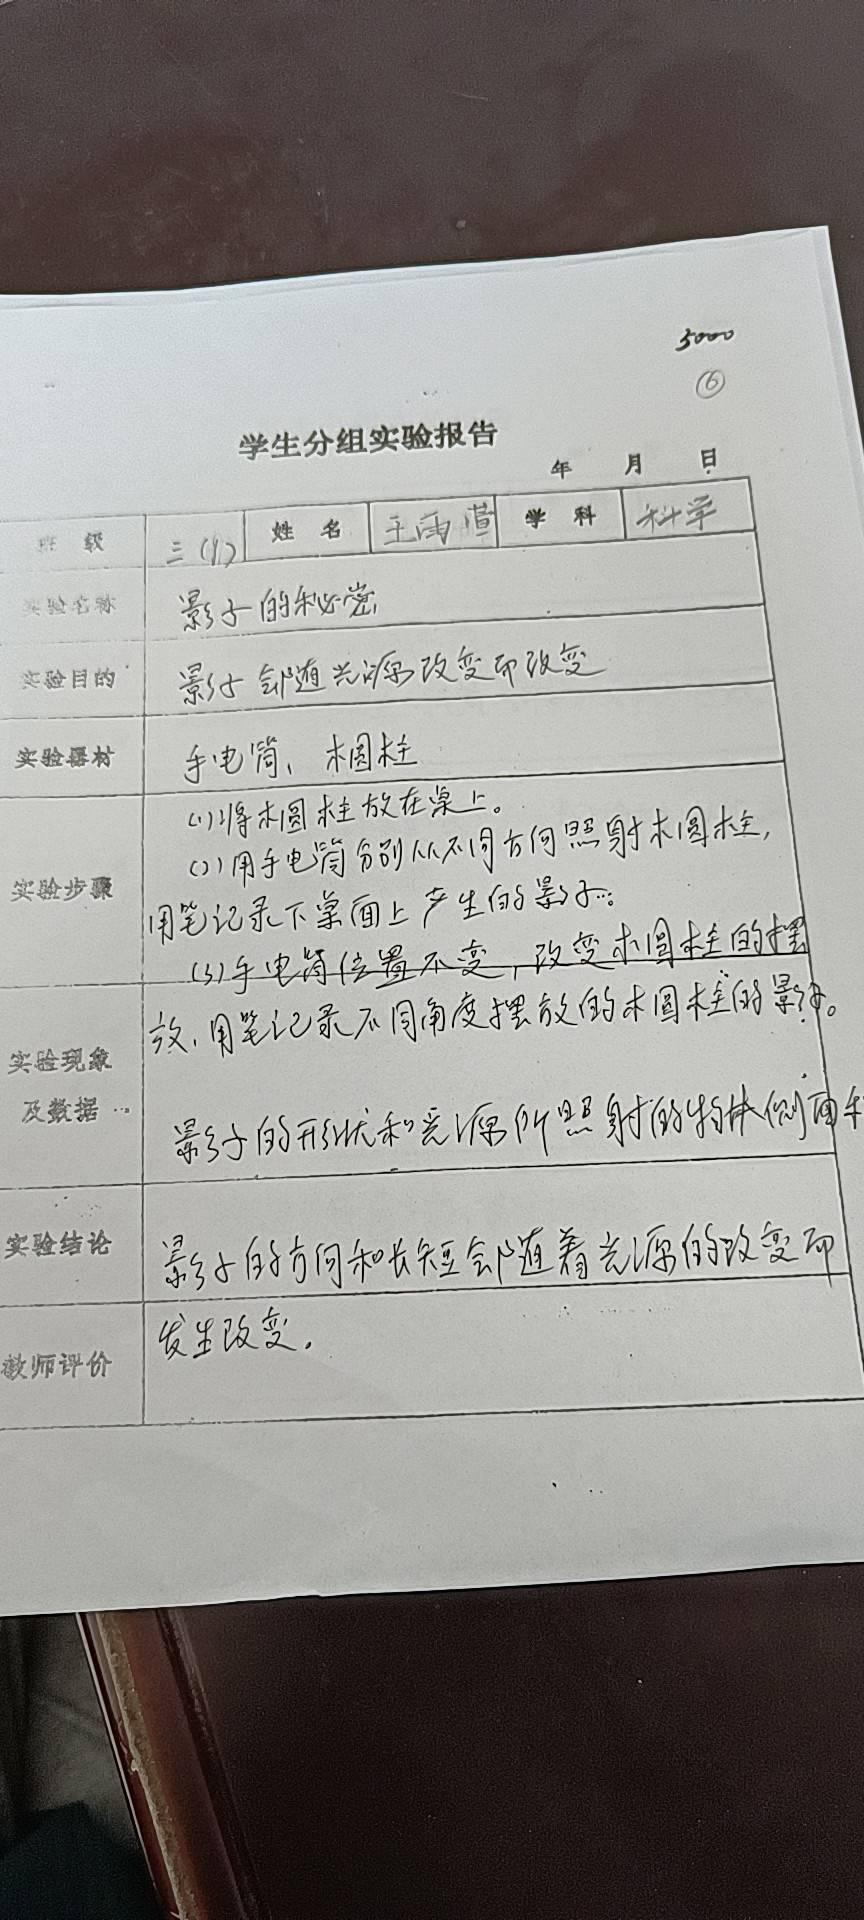 5000
⑥
学生分组实验报告
年 月 日
班 级 三(1) 姓 名 王雨萱 学 科 科学
实验名称 影子的秘密
实验目的 影子会随光源改变而改变
实验器材 手电筒、木圆柱
(1)将木圆柱放在桌上。
(2)用手电筒分别从不同方向照射木圆柱,
实验步骤
用笔记录下桌面上产生的影子。
(3)手电筒位置不变,改变木圆柱的摆
放,用笔记录不同角度摆放的木圆柱的影子。
实验现象
及数据
影子的形状和光源所照射的物体侧面
实验结论 影子的方向和长短会随着光源的改变而
发生改变。
教师评价